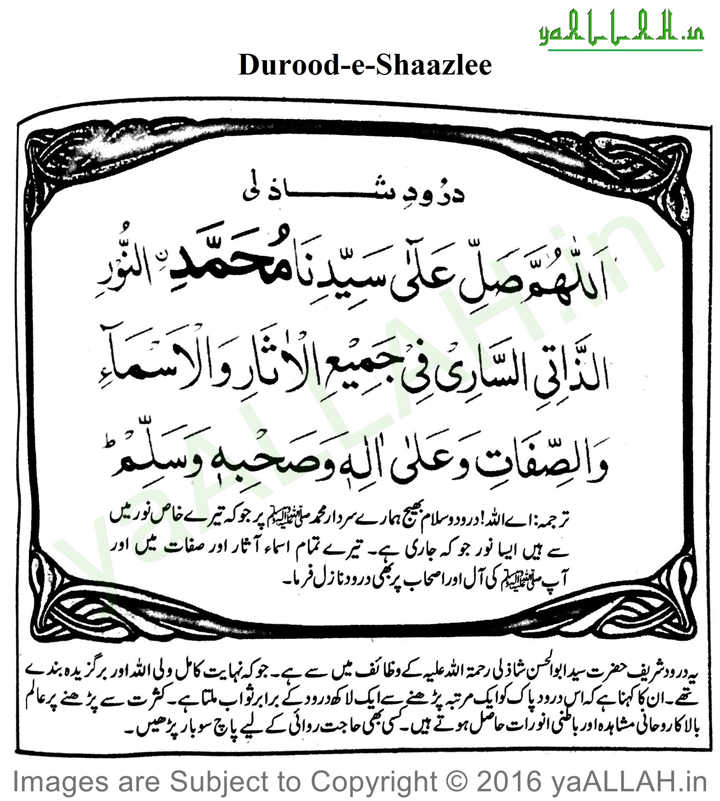 yaALLAH.in
Durood-e-Shaazlee
درُودِ شاذلی
اَللّٰهُمَّ صَلِّ عَلٰى سَيِّدِنَا مُحَمَّدِ نِ النُّوْرِ
الذَّاتِی السَّارِیْ فِیْ جَمِیْعِ الْاٰثَارِ وَالْاَسْمَآءِ
وَالصِّفَاتِ وَعَلٰی اٰلِهٖ وَصَحْبِهٖ وَسَلِّمْ ط
ترجمہ: اے اللہ! درود و سلام بھیج ہمارے سردار محمد ﷺ پر جو کہ تیرے خاص نور میں
سے ہیں ایسا نور جو کہ جاری ہے۔ تیرے تمام اسماء آثار اور صفات میں اور
آپ ﷺ کی آل اور اصحاب پر بھی درود نازل فرما۔
یہ درود شریف حضرت سید ابوالحسن شاذلی رحمۃ اللہ علیہ کے وظائف میں سے ہے۔ جو کہ نہایت کامل ولی اللہ اور برگزیدہ بندے
تھے۔ ان کا کہنا ہے کہ اس درود پاک کو ایک مرتبہ پڑھنے سے ایک لاکھ درود کے برابر ثواب ملتا ہے۔ کثرت سے پڑھنے پر عالم
بالا کا روحانی مشاہدہ اور باطنی انورات حاصل ہوتے ہیں۔ کسی بھی حاجت روائی کے لیے پانچ سو بار پڑھیں۔
yaALLAH.in
Images are Subject to Copyright © 2016 yaALLAH.in